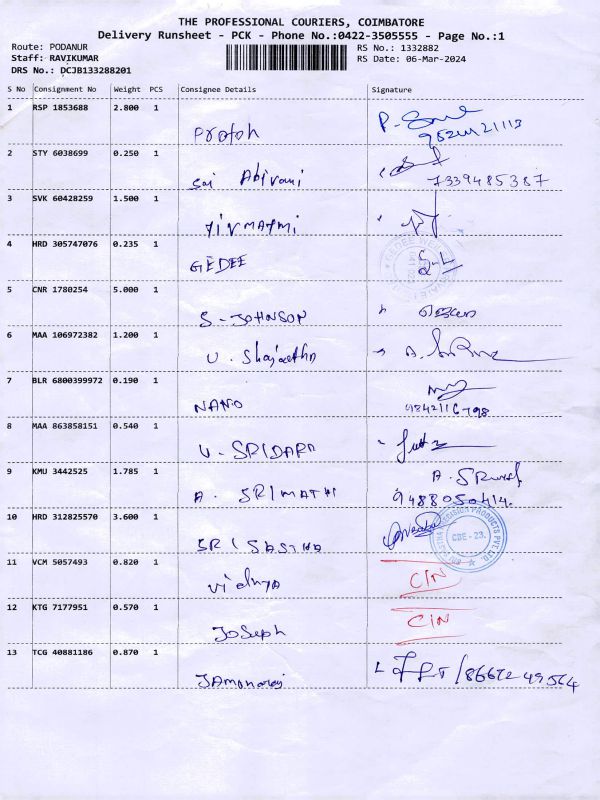 THE PROFESSIONAL COURIERS, COIMBATORE
Delivery Runsheet - PCK - Phone No.:0422-3505555 - Page No.:1
Route: PODANUR
RS No.: 1332882
Staff: RAVIKUMAR
RS Date: 06-Mar-2024
DRS No.: DCJB133288201
S No Consignment No Weight PCS Consignee Details Signature
1 RSP 1853688 2.800 1
2 STY 6038699 0.250 1
Sai Abirami 7339485387
3 SVK 60428259 1.500 1
4 HRD 305747076 0.235 1
GEDEE
5 CNR 1780254 5.000 1
S-JOHNSON
6 MAA 106972382 1.200 1
7 BLR 6800399972 0.190 1
NANO 9842116798
8 MAA 863858151 0.540 1
V. SRIDARA
9 KMU 3442525 1.785 1
A. SRIMATHI
9488050414.
10 HRD 312825570 3.600 1
SRI SASTHA
CBE - 23.
11 VCM 5057493 0.820 1
Vidhya C/N
12 KTG 7177951 0.570 1
Joseph C/N
13 TCG 40881186 0.870 1